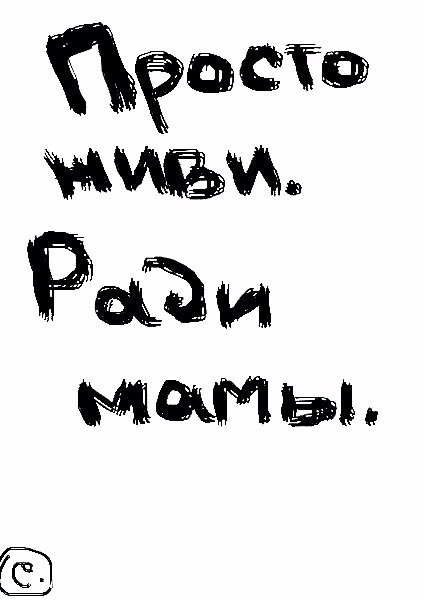 Просто
живи.
Ради
мамы.
с.